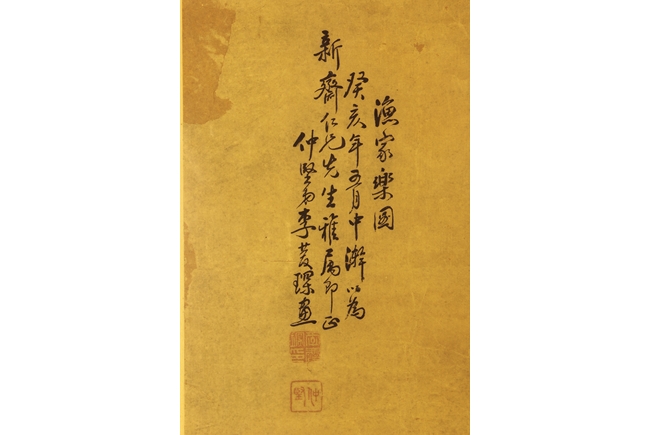 漁家樂圖
癸亥年五月中澣以為
新齋仁兄先生雅屬即正
仲堅弟李璨畫
仲堅